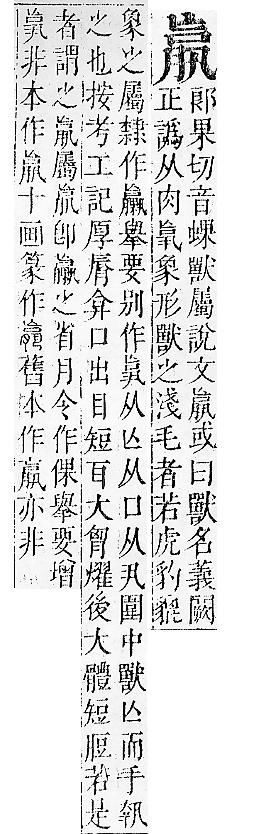 𣎆
郎果切音蜾獸屬說文𣎆或曰獸名義闕
正譌从肉象形獸之淺毛者若虎豹貔
象之屬隸作舉要別作从亾从口从丮圍中獸亾而手執
之也按考工記厚脣弇口出目短耳大胷燿後大體短脰若是
者謂之𣎆屬𣎆卽之省月令作倮舉要增
非本作𣎆十画篆作舊本作亦非